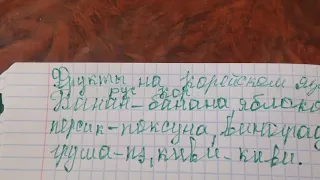 Фрукты на корейском яз
рус кор
Банан-банана яблоко
персик-поксуна, виноград
груша-пэ, киви-киви.